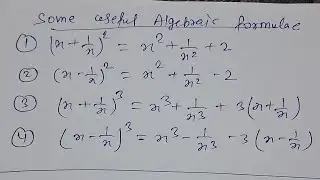 Some useful Algebraic formulae
① (x + 1/x)² = x² + 1/x² + 2
② (x - 1/x)² = x² + 1/x² - 2
③ (x + 1/x)³ = x³ + 1/x³ + 3(x + 1/x)
④ (x - 1/x)³ = x³ - 1/x³ - 3(x - 1/x)